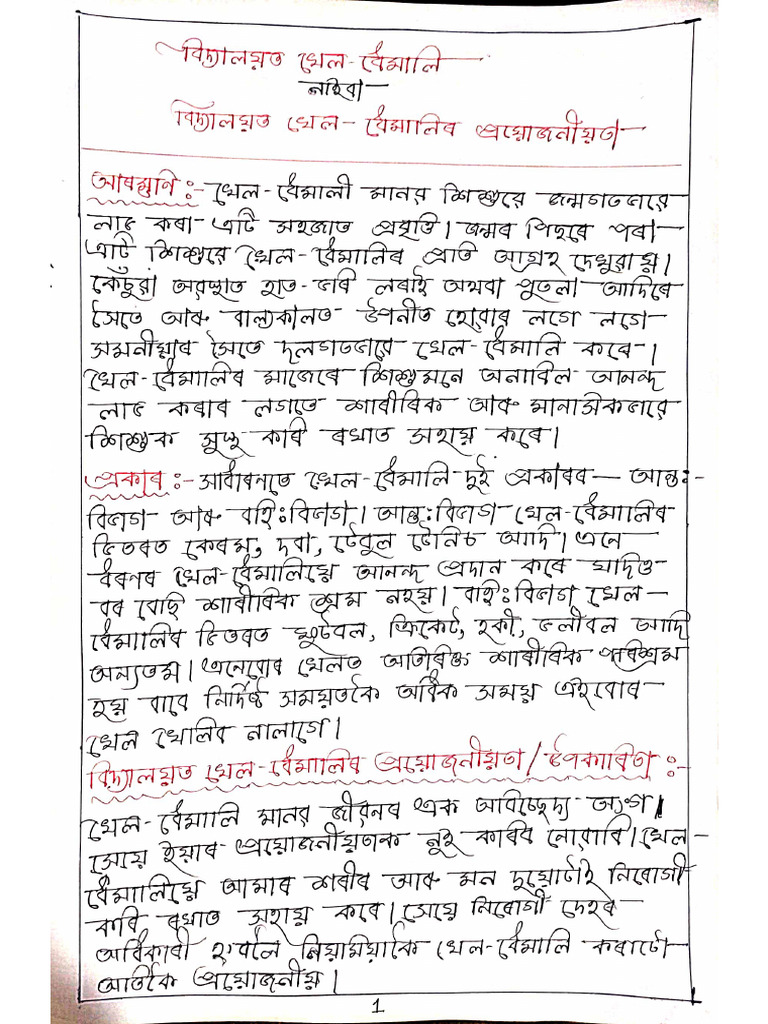 বিদ্যালয়ত খেল-ধেমালি
নাইবা
বিদ্যালয়ত খেল-ধেমালিৰ প্ৰয়োজনীয়তা
আৰম্ভণি :- খেল-ধেমালী মানৱ শিশুৱে জন্মগতভাৱে
লাভ কৰা এটি সহজাত প্ৰবৃত্তি। জন্মৰ পিছৰে পৰা
এটি শিশুৱে খেল-ধেমালিৰ প্ৰতি আগ্ৰহ দেখুৱায়।
কেঁচুৱা অৱস্থাত হাত-ভৰি লৰাই অথবা পুতলা আদিৰে
সৈতে আৰু বাল্যকালত উপনীত হোৱাৰ লগে লগে
সমনীয়াৰ সৈতে দলগতভাৱে খেল-ধেমালি কৰে।
খেল-ধেমালিৰ মাজেৰে শিশুমনে অনাবিল আনন্দ
লাভ কৰাৰ লগতে শাৰীৰিক আৰু মানসিকভাৱে
শিশুক সুস্থ কৰি ৰখাত সহায় কৰে।
প্ৰকাৰ :- সাধাৰণতে খেল-ধেমালি দুই প্ৰকাৰৰ— আন্তঃ-
বিভাগ আৰু বহিঃবিভাগ। আন্তঃবিভাগ খেল-ধেমালিৰ
ভিতৰত কেৰম, দবা, টেবুল টেনিচ আদি। এনে
ধৰণৰ খেল-ধেমালিয়ে আনন্দ প্ৰদান কৰে যদিও
বৰ বেছি শাৰীৰিক শ্ৰম নহয়। বহিঃবিভাগ খেল-
ধেমালিৰ ভিতৰত ফুটবল, ক্ৰিকেট, হকী, ভলীবল আদি
অন্যতম। এনেবোৰ খেলত অতিৰিক্ত শাৰীৰিক পৰিশ্ৰম
হয় বাবে নিৰ্দিষ্ট সময়তকৈ অধিক সময় এইবোৰ
খেল খেলিব নালাগে।
বিদ্যালয়ত খেল-ধেমালিৰ প্ৰয়োজনীয়তা/উপকাৰিতা :-
খেল-ধেমালি মানৱ জীৱনৰ এক অবিচ্ছেদ্য অংগ।
সেয়ে ইয়াৰ প্ৰয়োজনীয়তাক নুই কৰিব নোৱাৰি। খেল-
ধেমালিয়ে আমাৰ শৰীৰ আৰু মন দুয়োটাই নিৰোগী
কৰি ৰখাত সহায় কৰে। সেয়ে নিৰোগী দেহৰ
অধিকাৰী হ'বলৈ নিয়মিয়াকৈ খেল-ধেমালি কৰাটো
অতিকৈ প্ৰয়োজনীয়।
1